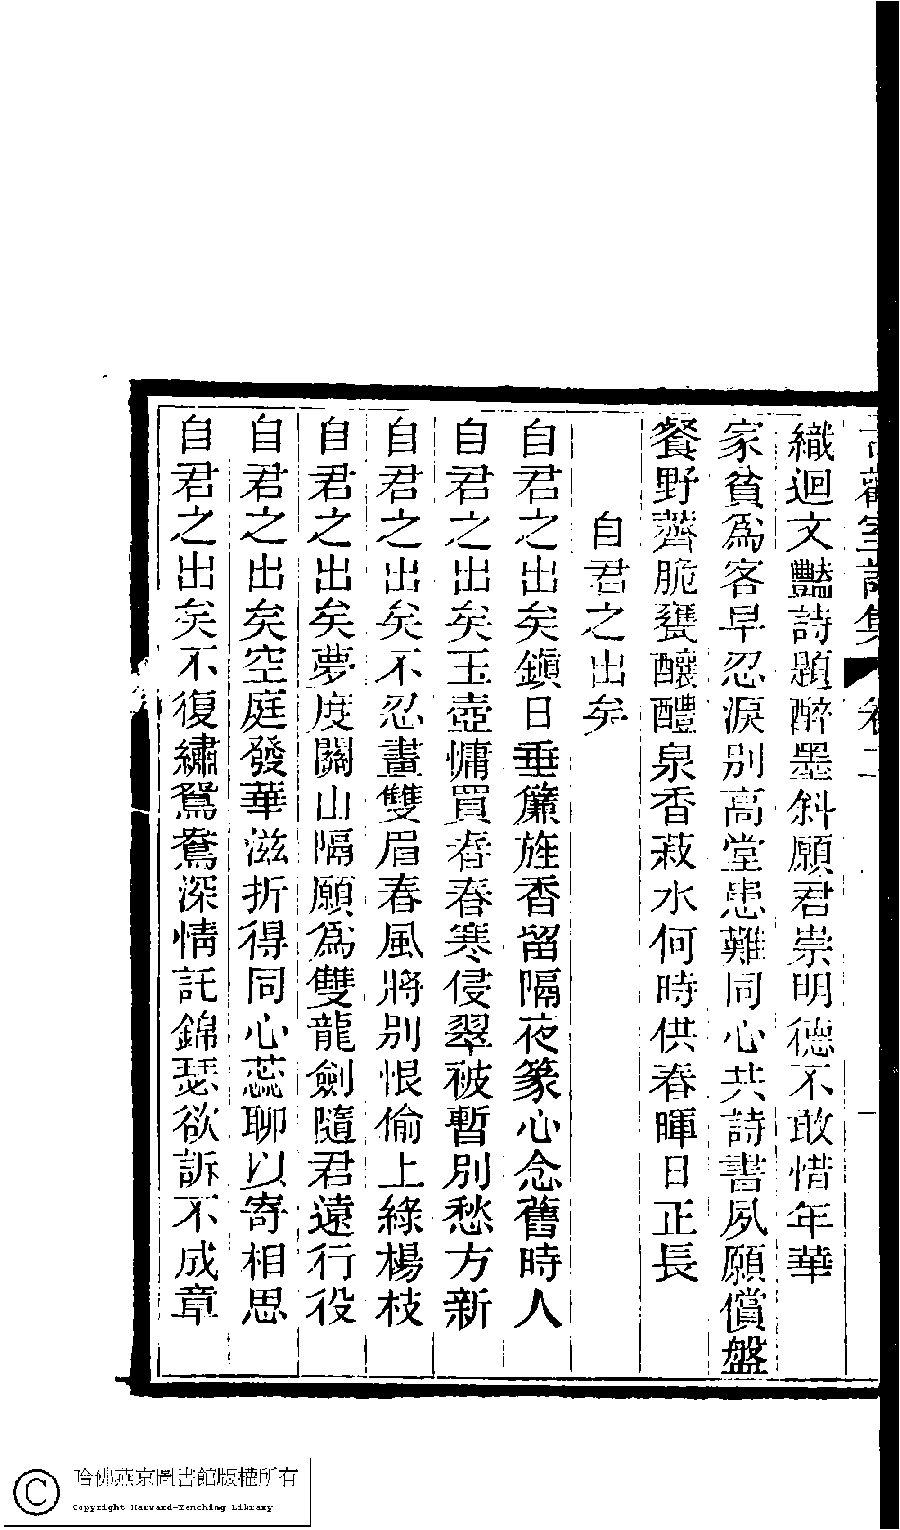 室詩集 卷二
織迴文豔詩題醉墨斜願君崇明德不敢惜年華
家貧爲客早忍淚別高堂患難同心共詩書夙願償盤
餐野薺脆甕釀醴泉香菽水何時供春暉日正長
自君之出矣
自君之出矣鎭日垂簾旌香留隔夜篆心念舊時人
自君之出矣玉壺慵買春春寒侵翠被暫別愁方新
自君之出矣不忍畫雙眉春風將別恨偷上綠楊枝
自君之出矣夢度關山隔願爲雙龍劍隨君遠行役
自君之出矣空庭發華滋折得同心蕊聊以寄相思
自君之出矣不復繡鴛鴦深情託錦瑟欲訴不成章
哈佛燕京圖書館版權所有
Copyright Harvard-Yenching Library